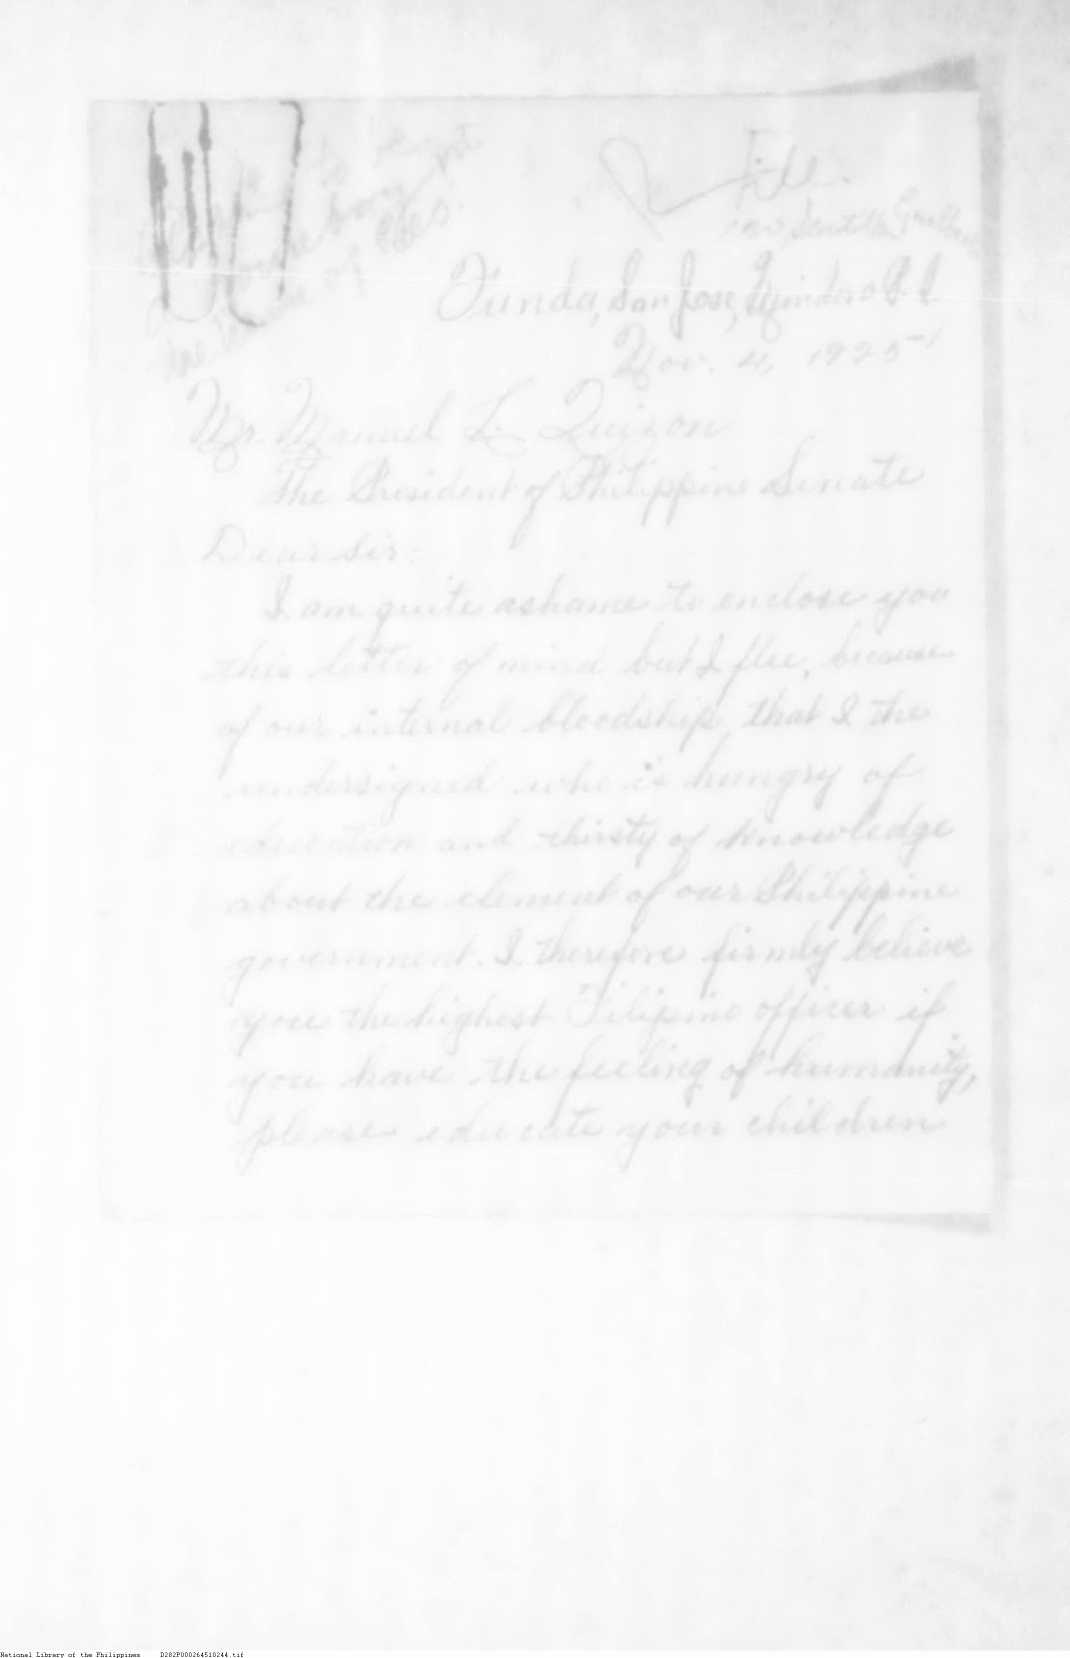 File
Funda, San Jose, Mindoro P. I.
Nov. 4, 1925
Mr. Manuel L. Quizon
The President of Philippine Senate
Dear Sir:
I am quite ashame to enclose you
this letter of mind but I flee, because
of our internal bloodship, that I the
undersigned who is hungry of
education and thirsty of knowledge
about the element of our Philippine
government. I therefore firmly believe
you the highest Filipino officer if
you have the feeling of humanity,
please educate your children
National Library of the Philippines D282P000264510244.tif